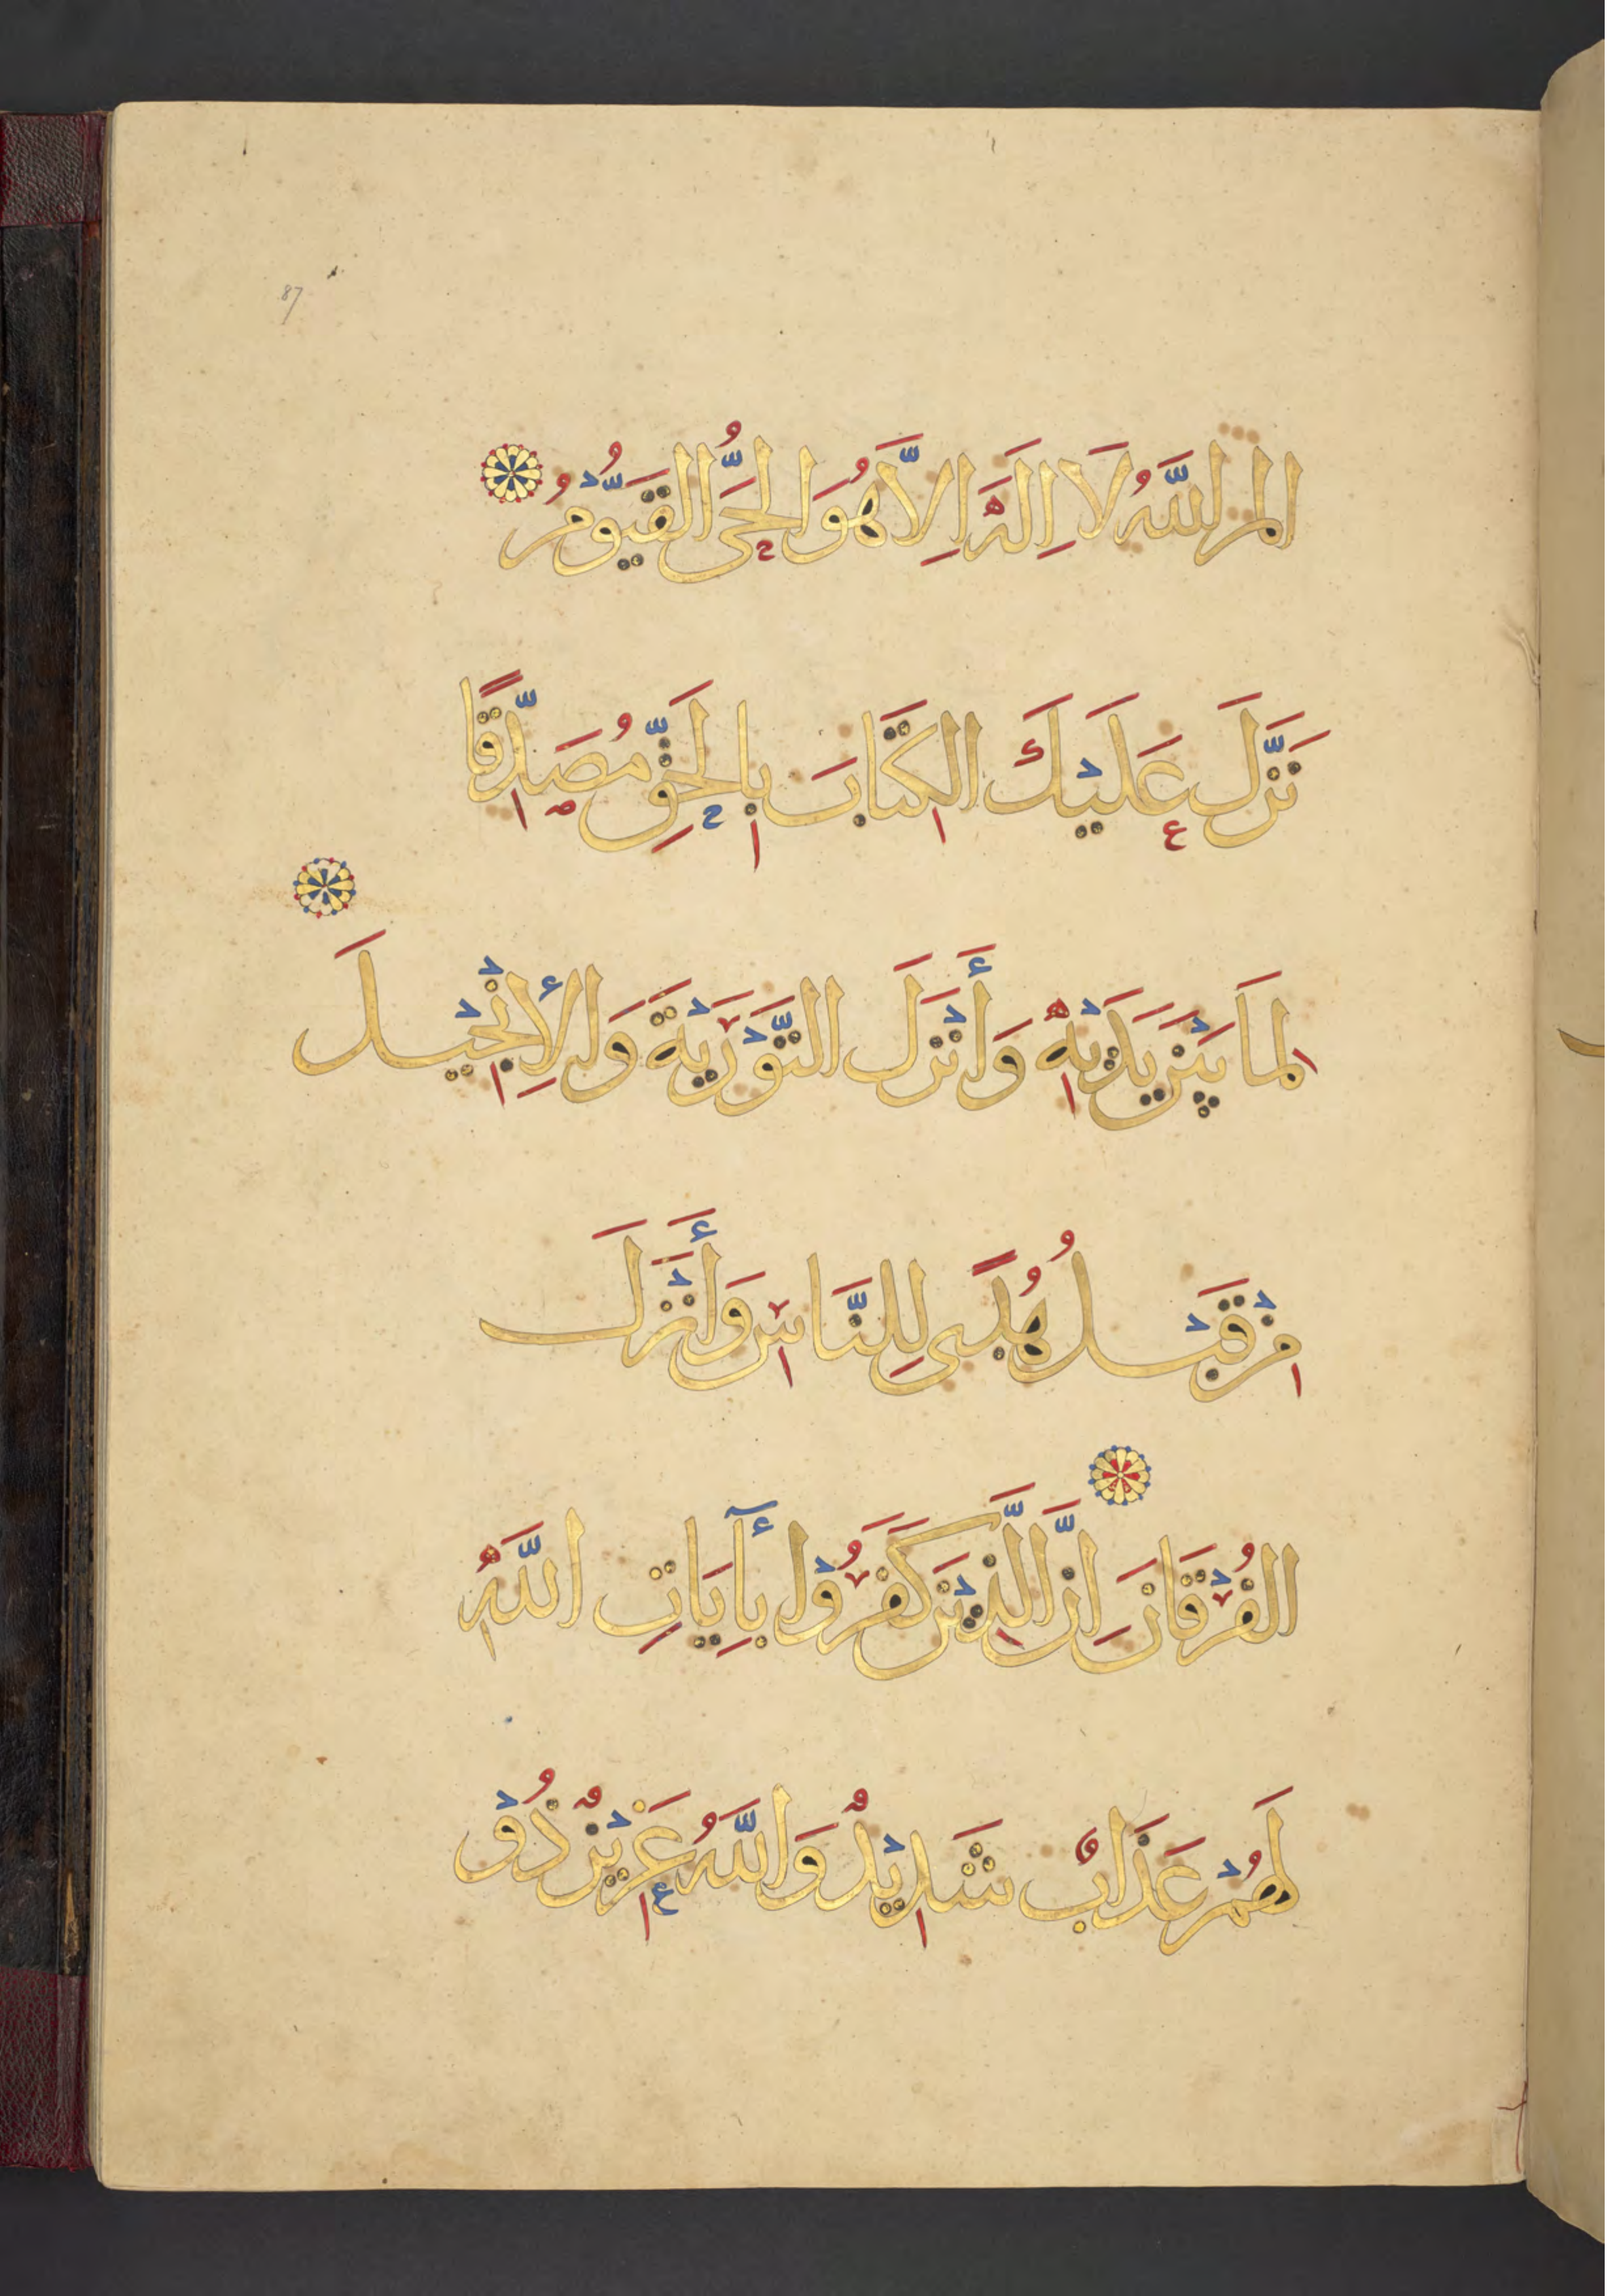 87
الم اللَّهُ لَا اِلَهَ اِلَّا هُوَ الحَىُّ القَيُّوْمُ
نَزَّلَ عَلَيْكَ الكِتَابَ بِالحَقِّ مُصَدِّقًا
لِمَا بَيْنَ يَدَيْهِ وَأَنْزَلَ التَّوْرَيٰةَ وَالإِنْجِيْلَ
مِنْ قَبْلُ هُدًى لِلنَّاسِ وَأَنْزَلَ
الفُرْقَانَ اِنَّ الَّذِيْنَ كَفَرُوْا بِأٓيَاتِ اللَّهِ
لَهُمْ عَذَابٌ شَدِيْدٌ وَاللَّهُ عَزِيْزٌ ذُوْ